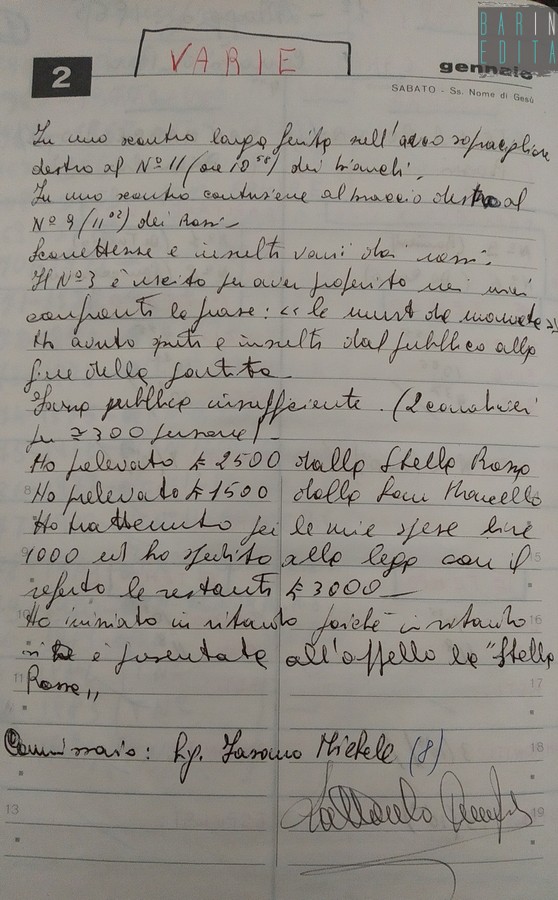 BARIN
EDITA
VARIE
2
gennaio
SABATO - Ss. Nome di Gesù
In uno scontro larga ferita sull'arco sopracigliare
destro al Nº 11 (ore 10⁵⁸) dei bianchi.
In uno scontro contusione al braccio destro al
Nº 9 (11⁰²) dei Rossi -
Scorrettezze e insulti vari dai rossi.
Il Nº 3 è uscito per aver proferito nei miei
confronti la frase: "le
Ho avuto sputi e insulti dal pubblico alla
fine della partita
Forza pubblica insufficiente. (2 carabinieri
per ≃ 300 persone) -
Ho prelevato £ 2500 dalla Stella Rossa
8 Ho prelevato £ 1500 dalla San Marcello
Ho trattenuto per le mie spese lire
9 1000 ed ho spedito alla lega con il 15
referto le restanti £ 3000 —
10 Ho iniziato in ritardo poichè in ritardo 16
si è presentata all'appello la "Stella
11 Rossa" 17
Commissario: Fasano Michele (8) 18
13 19